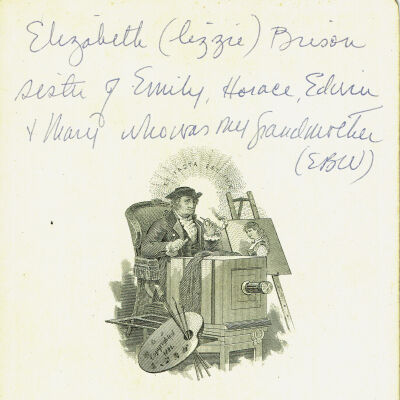 Elizabeth (lizzie) Brison
sister of Emily, Horace, Edwin
& Mary who was my grandmother
(EBW)